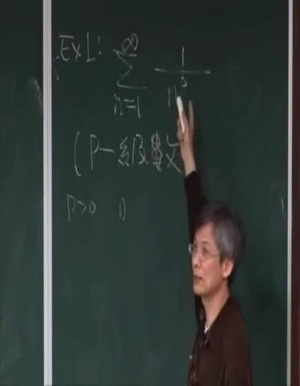 Ex1: ∑_{n=1}^{∞} 1/n³
(P-級數
p>0